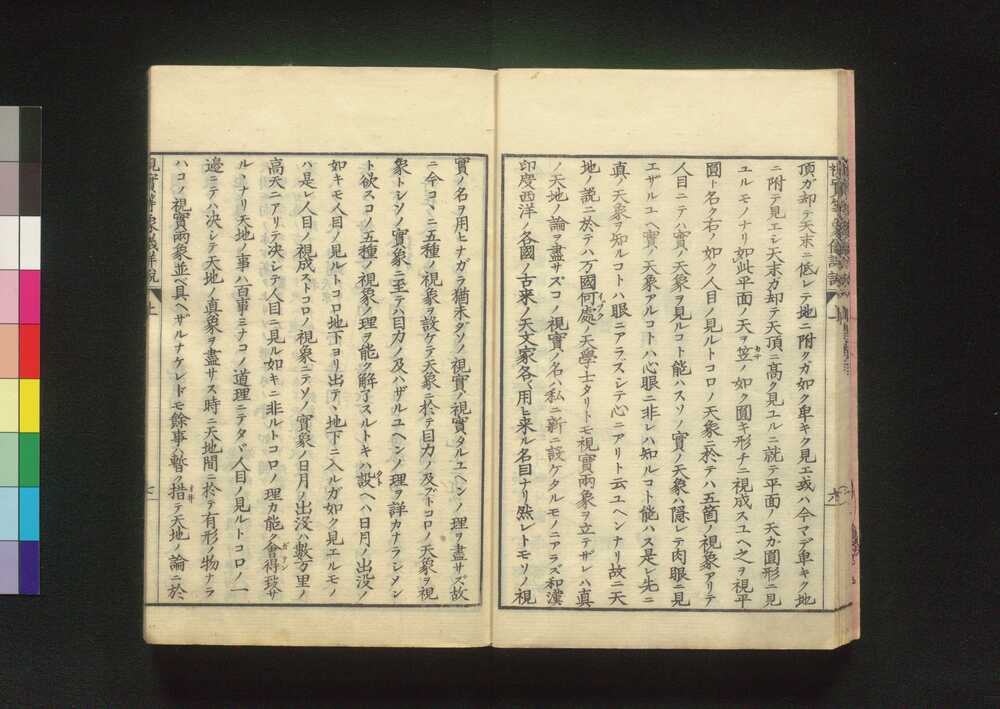 頂ガ却テ天末ニ低レテ地ニ附クガ如ク卑キク見エ或ハ今マデ卑キク地
ニ附テ見エシ天末カ却テ天頂ニ高ク見ユルニ就テ平面ノ天カ圓形ニ見
ユルモノナリ如此平面ノ天ヲ笠ノ如ク圓キ形チニ視成スユヘ之ヲ視平
圓ト名ク右ノ如ク人目ノ見ルトコロノ天象ニ於テハ五箇ノ視象アリテ
人目ニテハ實ノ天象ヲ見ルコト能ハスソノ實ノ天象ハ隠レテ肉眼ニ見
エザルユヘ實ノ天象アルコトハ心眼ニ非レハ知ルコト能ハス是レ先ニ
真ノ天象ヲ知ルコトハ眼ニアラズシテ心ニアリト云ユヘンナリ故ニ天
地ノ説ニ於テハ万國何處ノ天學士タリトモ視實兩象ヲ立テザレハ真
ノ天地ノ論ヲ盡サズコノ視實ノ名ハ私ニ新ニ設ケタルモノニアラズ和漢
印度西洋ノ各國ノ古来ノ天文家各〻用ヒ来ル名目ナリ然レトモソノ視
實ノ名ヲ用ヒナガラ猶未ダソノ視實ノ視實タルユヘンノ理ヲ盡サズ故
ニ今コヽニ五種ノ視象ヲ設ケテ天象ニ於テ目力ノ及ブトコロノ天象ヲ視
象トシソノ實象ニ至テハ目力ノ及ハザルユヘンノ理ヲ詳カナラシメン
ト欲スコノ五種ノ視象ノ理ヲ能ク解了スルトキハ設ヘハ日月ノ出没ノ
如キモ人目ノ見ルトコロ地下ヨリ出テヽ地下ニ入ルガ如ク見エルモノ
ハ是レ人目ノ視成ストコロノ視象ニテソノ實象ノ日月ノ出没ハ數万里ノ
高天ニアリテ决シテ人目ニ見ル如キニ非ルトコロノ理カ能ク會得致サ
ルヽナリ天地ノ事ハ百事ミナコノ道理ニテタヾ人目ノ見ルトコロノ一
邊ニテハ决シテ天地ノ真象ヲ盡サス時ニ天地間ニ於テ有形ノ物ナラ
ハコノ視實兩象並ベ具ヘザルナケレドモ餘事ハ暫ク措テ天地ノ論ニ於
視實等象儀詳說 上 七